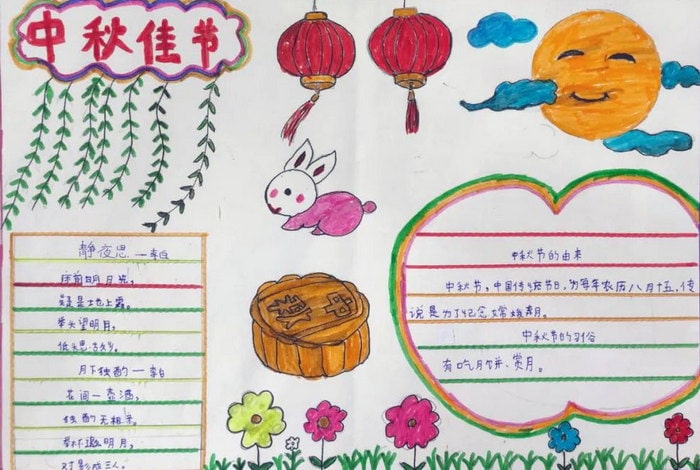 中秋佳节
静夜思 —李白
床前明月光,
疑是地上霜。
举头望明月,
低头思乡。
月下独酌 —李白
花间一壶酒,
独酌无相亲。
举杯邀明月,
对影成三人。
中秋节的由来
中秋节,中国传统节日,为每年农历八月十五,传
说是为了纪念嫦娥
中秋节的习俗
有吃月饼、赏月。